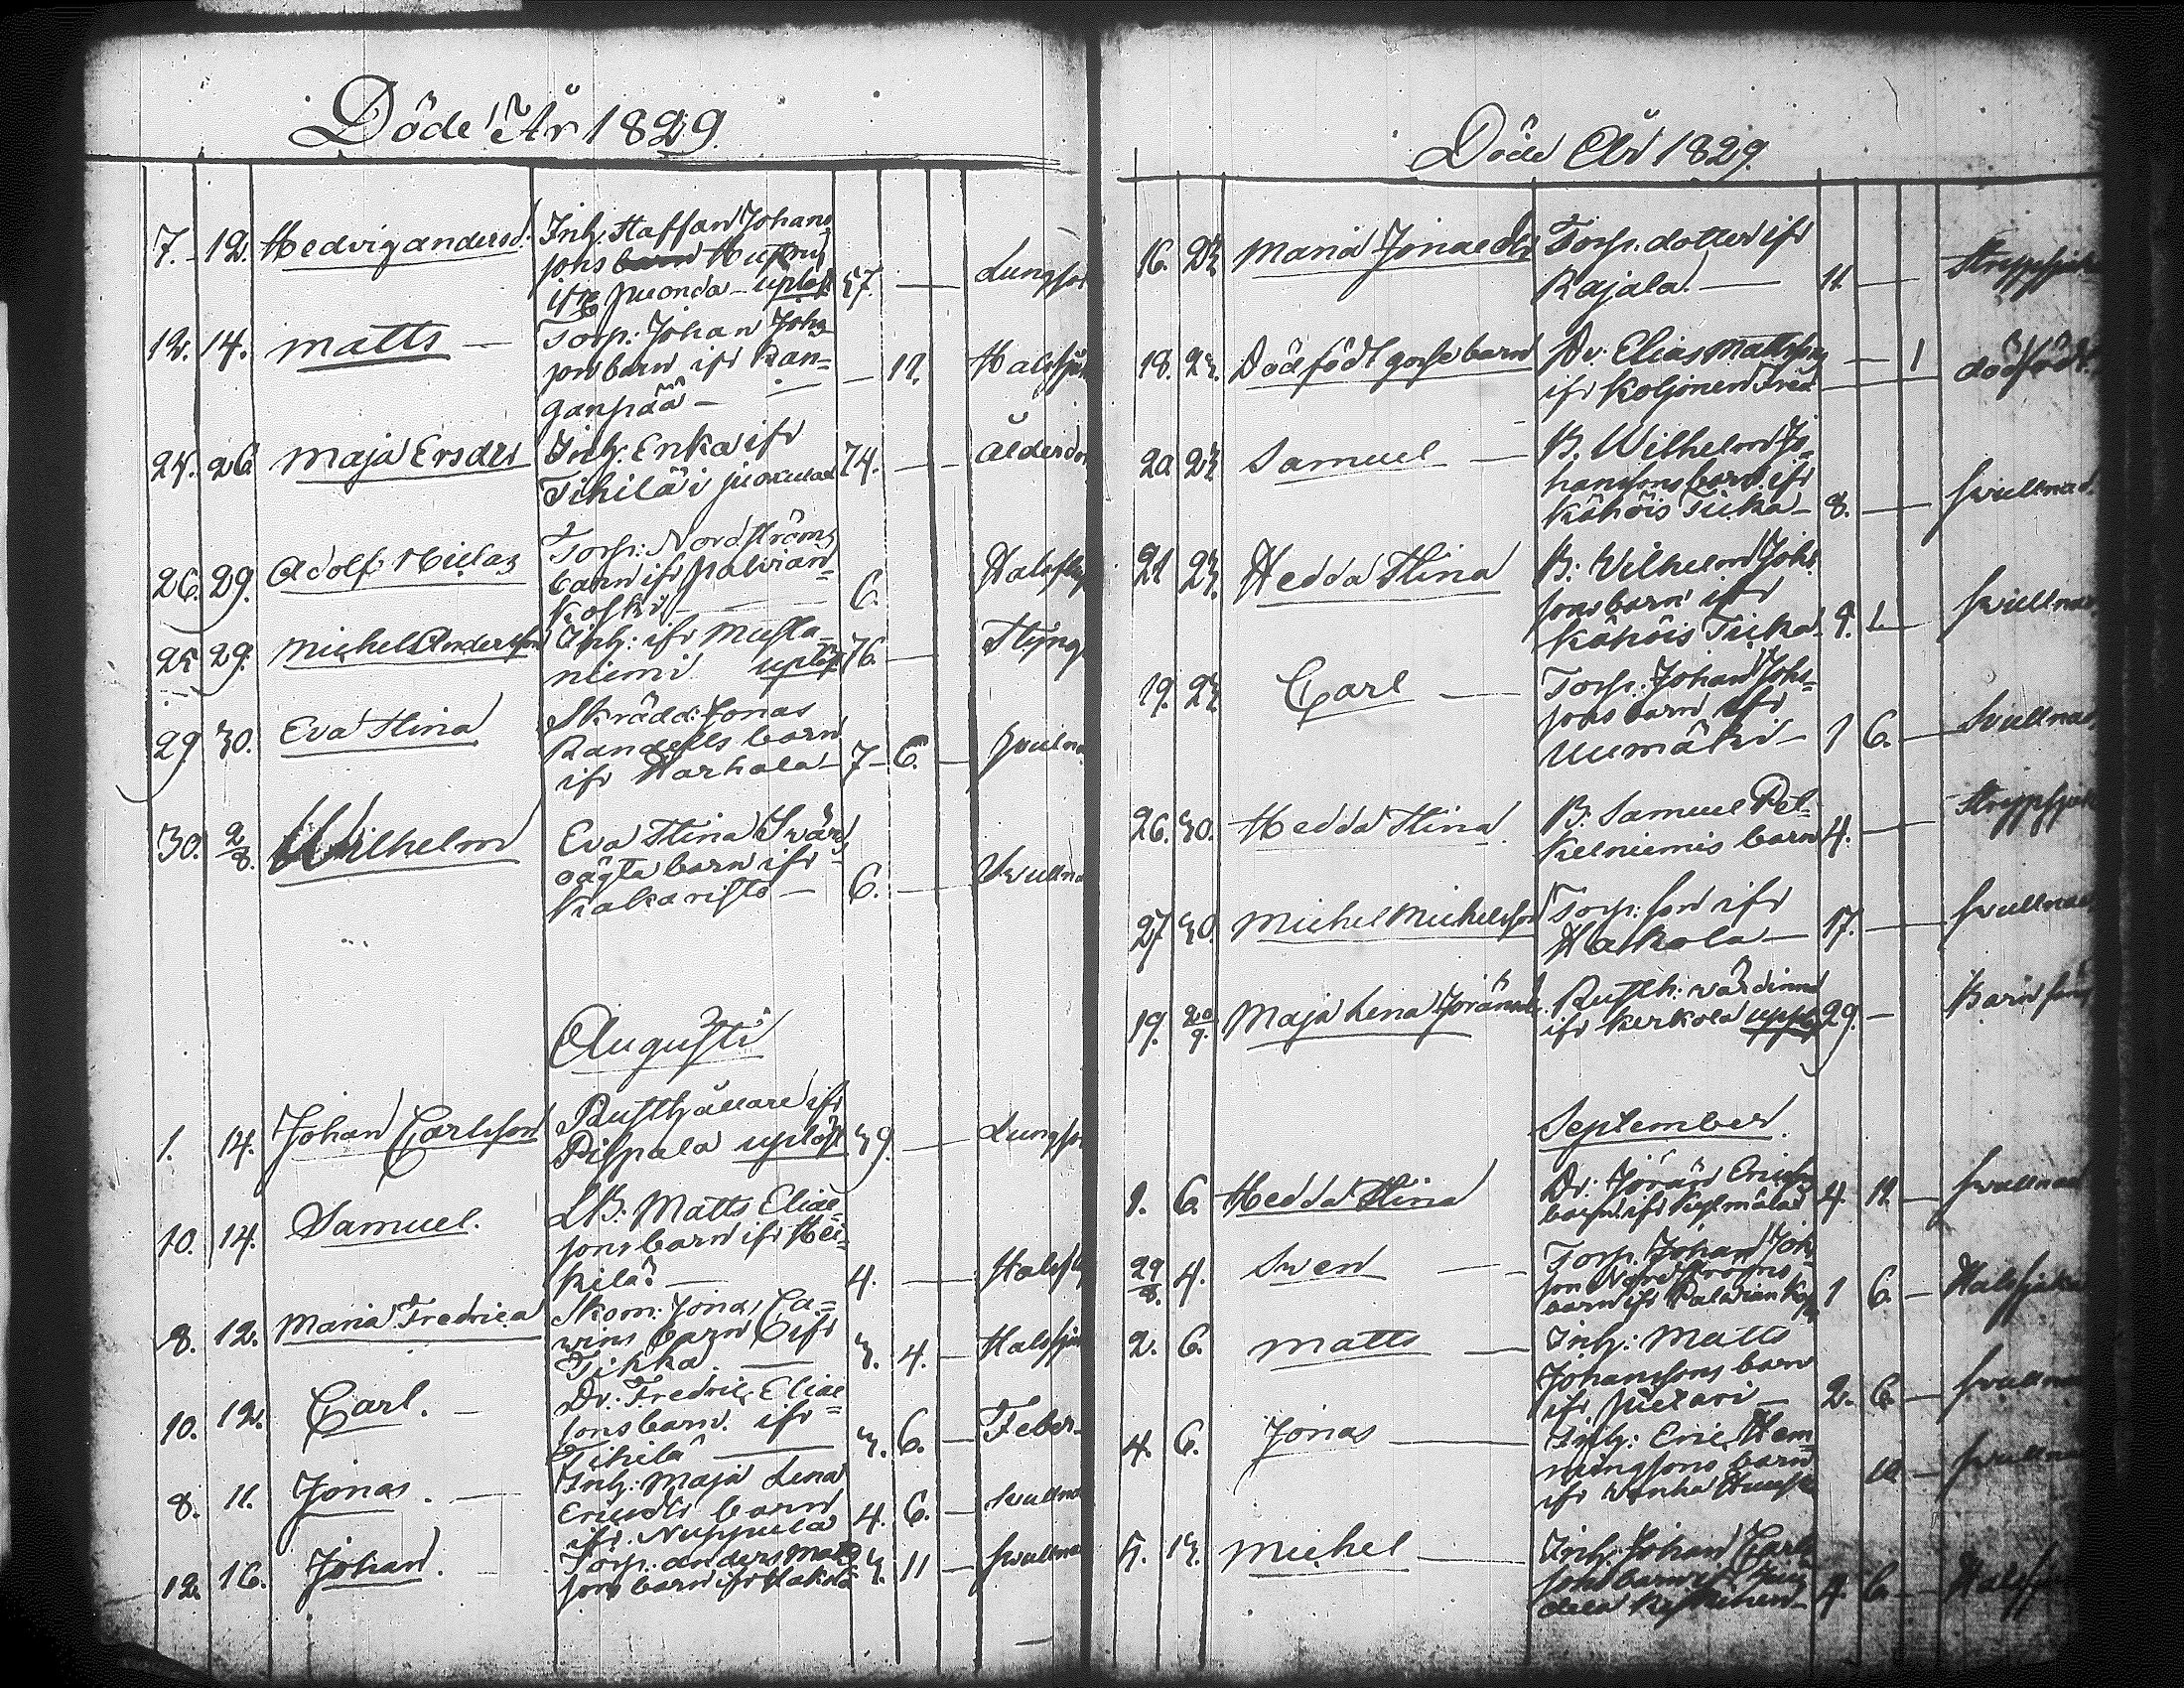 Döde År 1829.
7. 12. Hedvig andersd. Inh. Staffan Johans
sons barn Hustru
ifr Juonda uplöst 57. — Lungsot
12. 14. Matts — Torp. Johan Johs
sons barn ifr Kan-
ganpää — — 11. Halssjuk
25. 26 Maja Ersdtr Inh. Enka ifr
Tihilä i 74. — Ålderdom
26. 29. Adolf Niclas Torp: Nordströms
barn ifr Palvian-
koski — 6. Halsflu
25 29. Michel Andersson Inh: ifr Musta-
niemi uplöst 76. — Styng
29 30. Eva Stina Skrädd: Jonas
Randells barn
ifr Harhala 7 6. — svulna
30. 2/8. Wilhelm Eva Stina Svärds
oägta barn ifr
Kakaristo — 6. — Svullna
Augusti
1. 14. Johan Carlsson Rusthållare ifr
Pispala uplöst 39. — Lungso
10. 14. Samuel. LB: Matts Eliae
sons barn ifr Hei-
kilä — 4. — Halsflu
8. 12. Maria Fredrica Skom: Jonas Ca-
wins barn ifr
Tikka. — 3. 4. — Halssju
10. 12. Carl. — Dr: Fredric Eliae
sons barn. ifr
Tihilä — 3. 6. — Feber
8. 11. Jonas. — Inh: Maja Lena
Ericsdtr barn
ifr. Nuppula 4. 6. — Svullna
12. 16. Johan. — Torp: anders Matts
sons barn ifr Hakola 3. 11 — svullna
Döde År 1829.
16. 23 Maria Jonaedtr Torp. dotter ifr
Kajala. — 11. — Strypsjuk
18. 23. Dödfödt gosse barn Dr: Elias Mattsson
ifr Koljonen — 1 dödfödt.
20 23 Samuel — B. Wilhelm Jo-
hanssons barn ifr
Kähöis Tuka — 8. — svullnad.
21 23. Hedda Stina B: Wilhelm Johs
sons barn ifr
Kähöis Tuka 9. 1. — svullnad
19. 23 Carl — Torp: Johan Johs-
sons barn ifr
Uumäki — 1 6. — Svullnad
26. 30. Hedda Stina. B: Samuel Pel-
kelniemis barn 4. — Strypsjuk
27 30. Michel Michelsson Torp: son ifr
Hakola — 17. — svullnad
19. 20/9. Maja Lena Jöransd. Rusth: värdinna
ifr Kerkola uppl 29. — Barn
September.
1. 6. Hedda Stina Dr: Jöran Erics
barn ifr Kylmälä 4 11. — svullnad
29/8. 4. Swen — Torp. Johan Joh
son Nordströms
barn ifr Palvian 1 6. — Halssjuka
2. 6. Matts — Inh: Matts
Johanssons barn
ifr — 2. 6. — svullna
4. 6. Jonas — Inh: Eric Hem-
mingsons barn
ifr Wanha 10 — svullna
5. 13. Michel — Inh: Johan Carl
sons barn ifr
4. 6. — Halssju